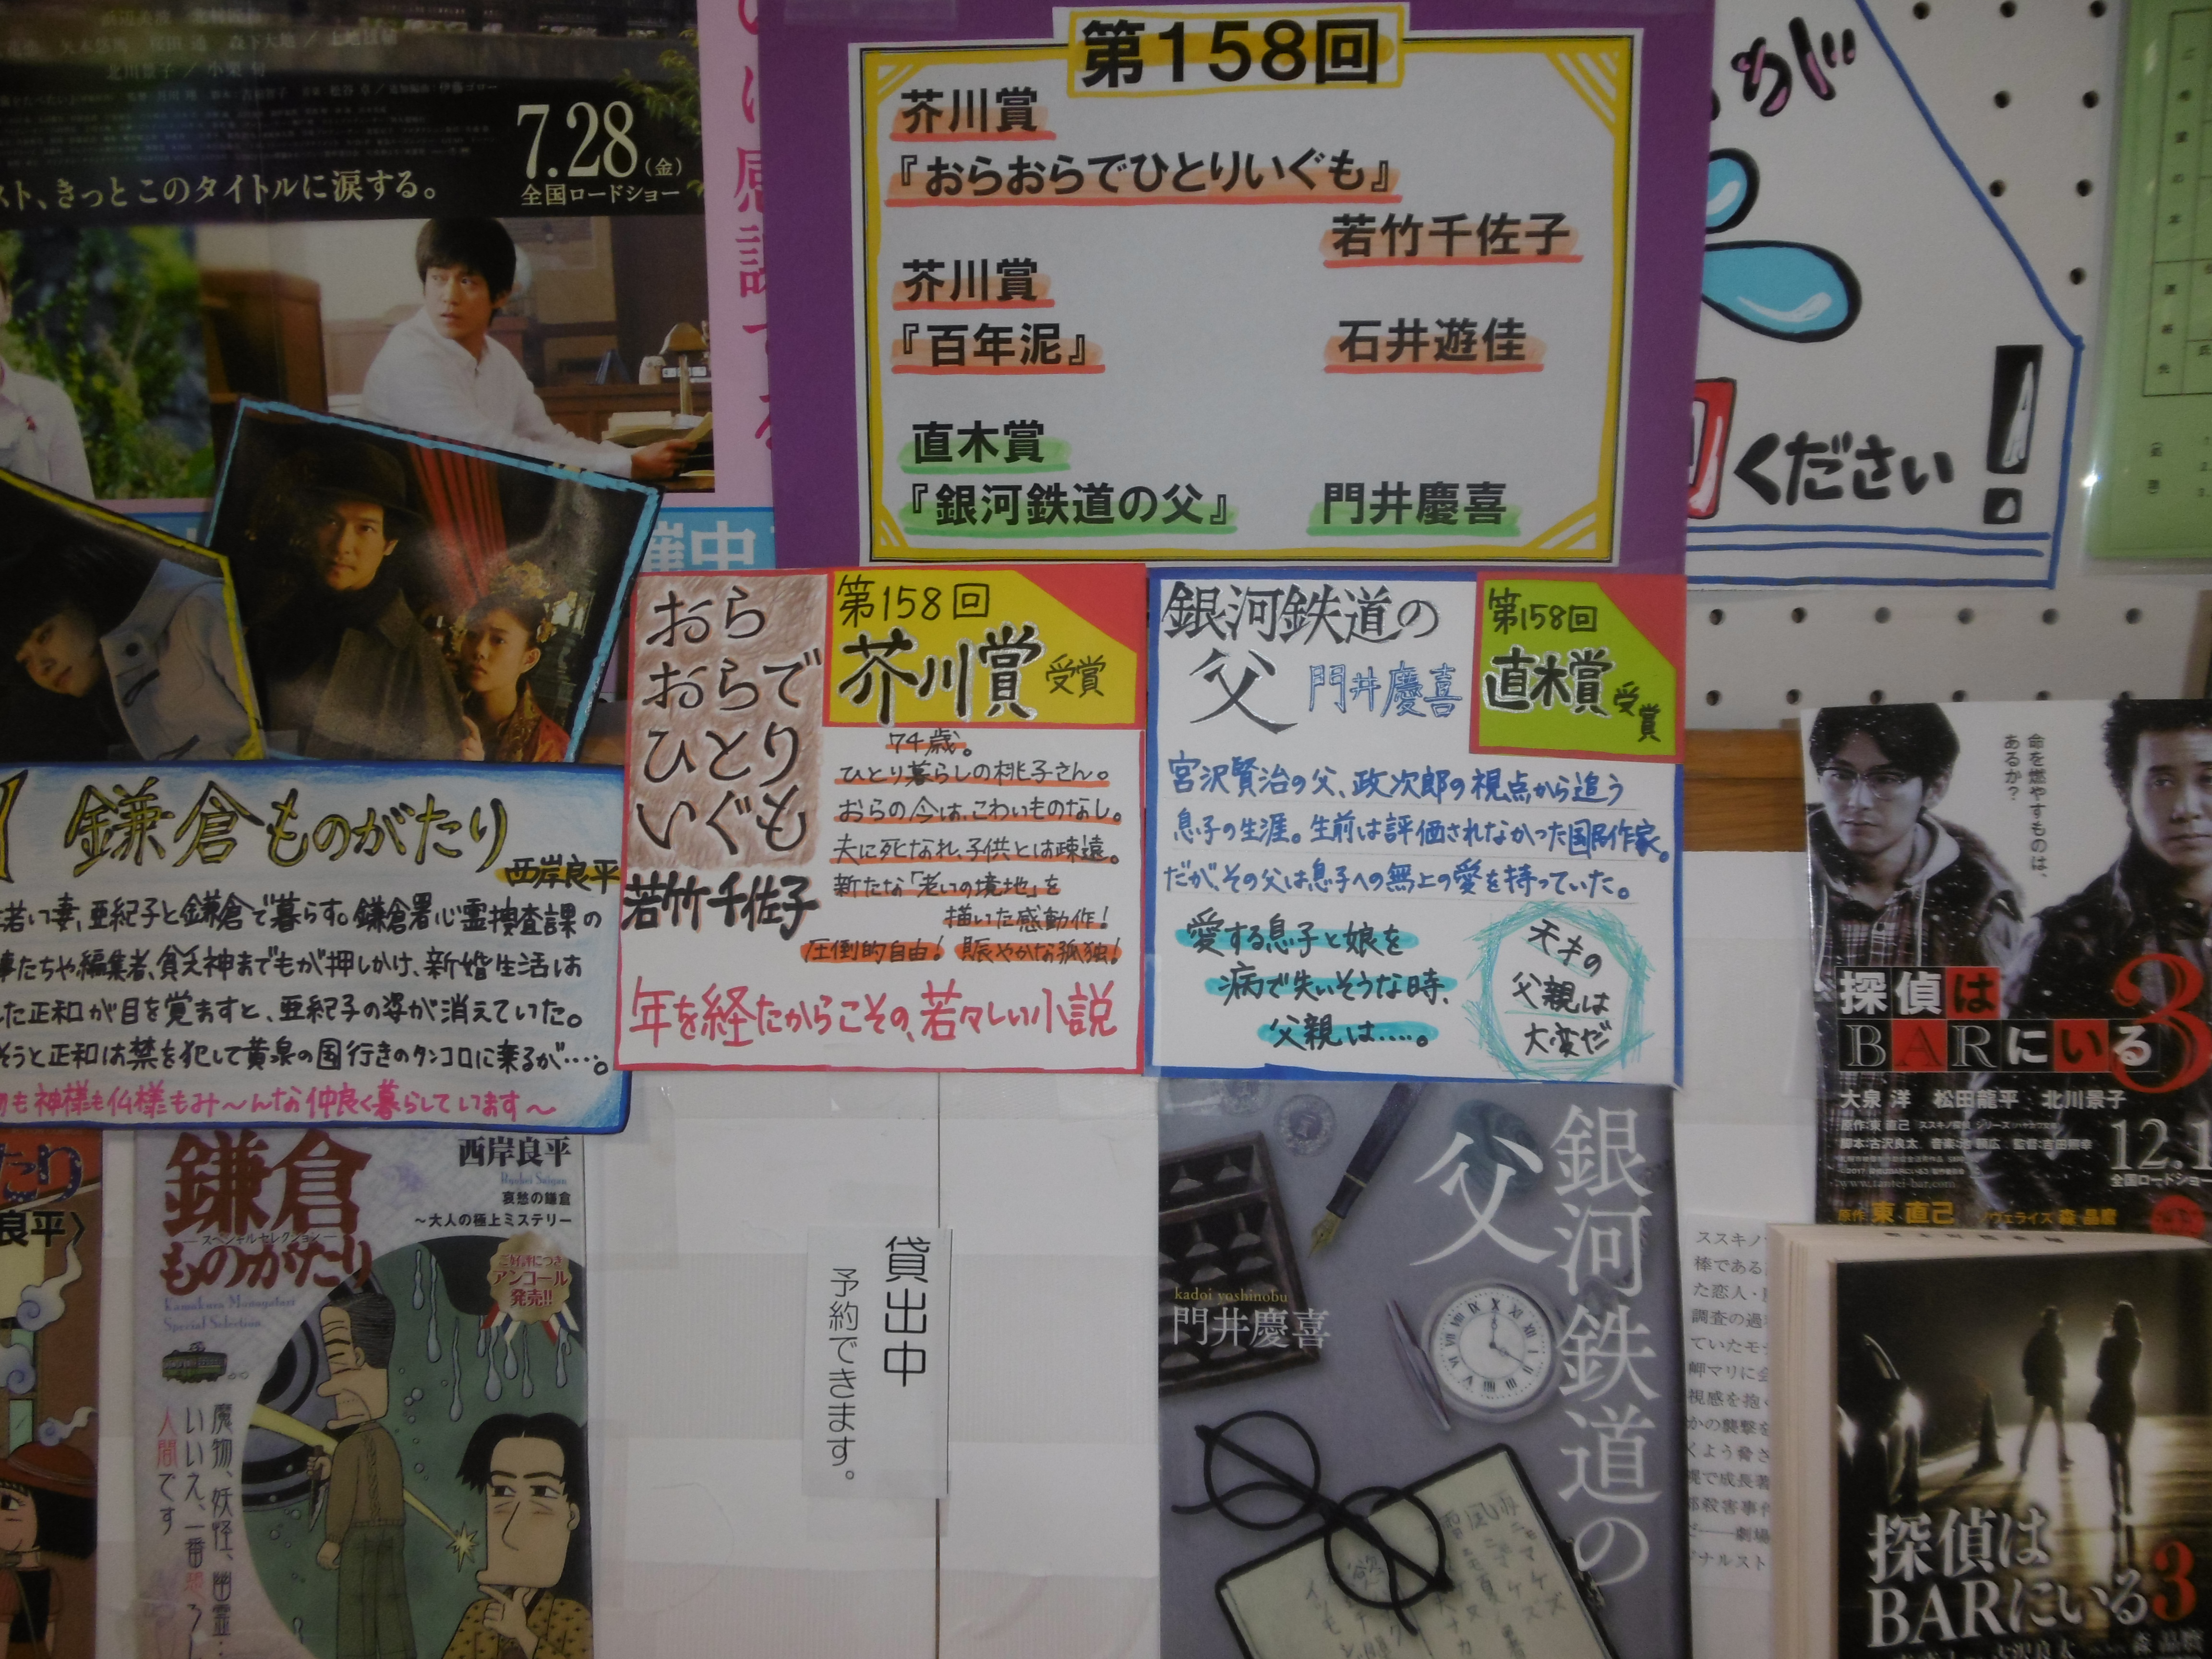 浜辺美波
矢本悠馬 桜田通 森下大地／上地雄輔
北川景子／小栗旬
7.28(金)
全国ロードショー
スト、きっとこのタイトルに涙する。
第158回
芥川賞
『おらおらでひとりいぐも』
若竹千佐子
芥川賞
『百年泥』 石井遊佳
直木賞
『銀河鉄道の父』 門井慶喜
が
ください!
催中
おら
おらで
ひとり
いぐも
若竹千佐子
第158回
芥川賞 受賞
74歳。
ひとり暮らしの桃子さん。
おらの今は、こわいものなし。
夫に死なれ、子供とは疎遠。
新たな「老いの境地」を
描いた感動作!
圧倒的自由! 賑やかな孤独!
年を経たからこその、若々しい小説
銀河鉄道の
父 門井慶喜
第158回
直木賞 受賞
宮沢賢治の父、政次郎の視点から追う
息子の生涯。生前は評価されなかった国民作家。
だが、その父は息子への無上の愛を持っていた。
愛する息子と娘を
病で失いそうな時、
父親は……。
天才の
父親は
大変だ
鎌倉ものがたり
西岸良平
若い妻、亜紀子と鎌倉で暮らす。鎌倉署心霊捜査課の
事たちや編集者、貧乏神までもが押しかけ、新婚生活は
た正和が目を覚ますと、亜紀子の姿が消えていた。
そうと正和は禁を犯して黄泉の国行きのタンコロに乗るが…。
も神様も仏様もみ〜んな仲良く暮らしています〜
たり
良平〉
鎌倉
―スペシャルセレクション―
ものがたり
Kamakura Monogatari
Special Selection
西岸良平
Ryohei Saigan
哀愁の鎌倉
〜大人の極上ミステリー
ご好評につき
アンコール
発売!!
魔物、妖怪、幽霊…
いいえ、一番恐ろし
人間です
貸出中
予約できます。
銀河鉄道の
父
kadoi yoshinobu
門井慶喜
命を燃やすものは、
あるか?
探偵は
BARにいる3
大泉洋 松田龍平 北川景子
原作:東直己 ススキノ探偵シリーズ
脚本:古沢良太 音楽:池頼広 監督:吉田照幸
www.tantei-bar.com
12.1
全国ロードショー
原作 東直己 ノヴェライズ 森晶麿
ススキノ
棒である
た恋人・
調査の過
ていたモ
岬マリに会
視感を抱く
かの襲撃を
くよう脅さ
幌で成長著
殺害事件
劇場
ナルスト
探偵は
BARにいる3